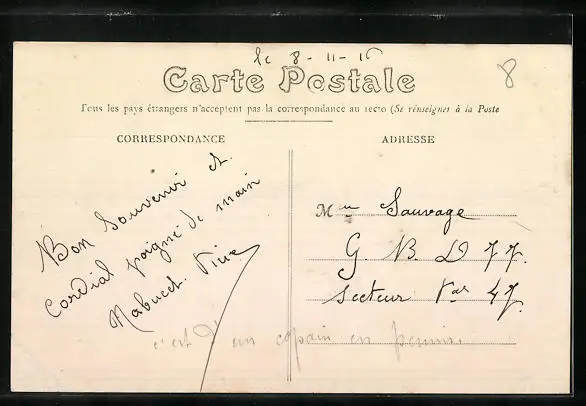 le 8-11-16
8
Carte Postale
Tous les pays étrangers n'acceptent pas la correspondance au recto (Se renseigner à la Poste
CORRESPONDANCE
ADRESSE
Bon Souvenir et
Cordial poigné de main
M Sauvage
G. B D 77.
Secteur 47.
c'est d'un copain en